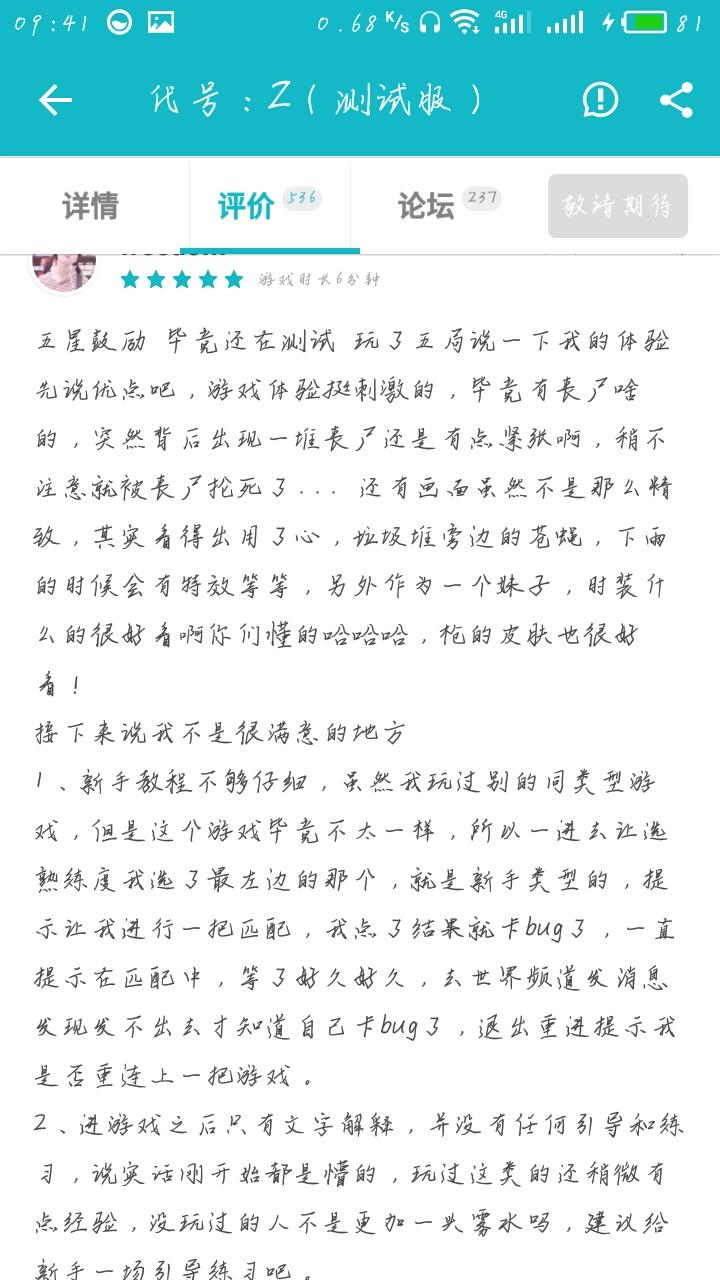 09:41 0.68 K/s 4G 81
代号：Z（测试服）
详情 评价 536 论坛 237 敬请期待
游戏时长6分钟
五星鼓励 毕竟还在测试 玩了五局说一下我的体验
先说优点吧，游戏体验挺刺激的，毕竟有丧尸啥
的，突然背后出现一堆丧尸还是有点紧张啊，稍不
注意就被丧尸抡死了... 还有画面虽然不是那么精
致，其实看得出用了心，垃圾堆旁边的苍蝇，下雨
的时候会有特效等等，另外作为一个妹子，时装什
么的很好看啊你们懂的哈哈哈，枪的皮肤也很好
看！
接下来说我不是很满意的地方
1、新手教程不够仔细，虽然我玩过别的同类型游
戏，但是这个游戏毕竟不太一样，所以一进去让选
熟练度我选了最左边的那个，就是新手类型的，提
示让我进行一把匹配，我点了结果就卡bug了，一直
提示在匹配中，等了好久好久，去世界频道发消息
发现发不出去才知道自己卡bug了，退出重进提示我
是否重连上一把游戏。
2、进游戏之后只有文字解释，并没有任何引导和练
习，说实话刚开始都是懵的，玩过这类的还稍微有
点经验，没玩过的人不是更加一头雾水吗，建议给
新手一场引导练习吧。